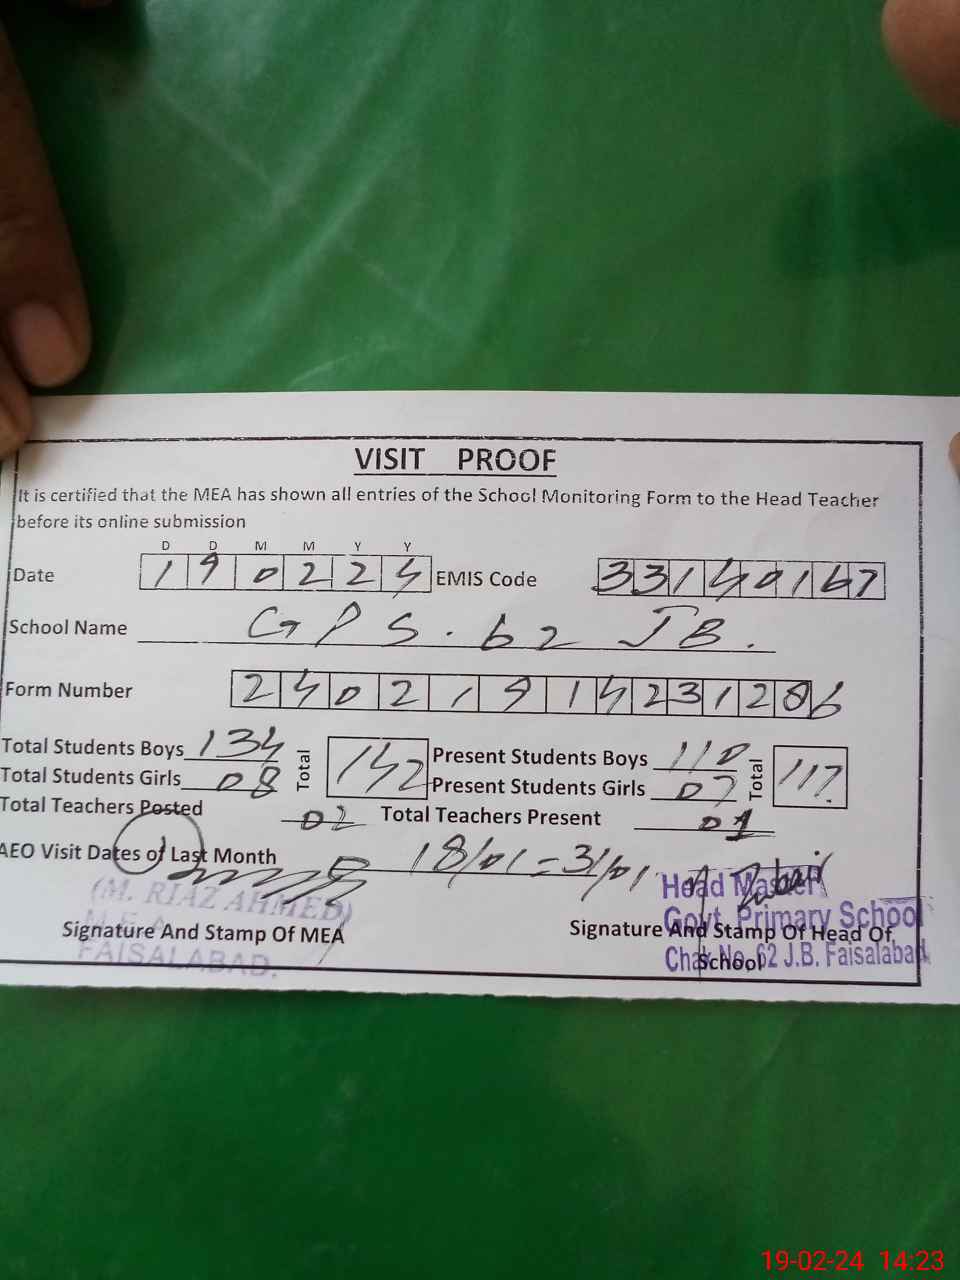 VISIT PROOF
It is certified that the MEA has shown all entries of the School Monitoring Form to the Head Teacher
before its online submission
D D M M Y Y
Date 190224 EMIS Code 33140167
School Name GPS. 62 JB.
Form Number 24021914231206
Total Students Boys 134 Total 142 Present Students Boys 110 Total 117
Total Students Girls 08 Present Students Girls 07
Total Teachers Posted 02 Total Teachers Present 01
AEO Visit Dates of Last Month 18/01 = 31/01
(M. RIAZ AHMED)
M.E.A
FAISALABAD.
Signature And Stamp Of MEA
Head Master
Govt. Primary School
Chak No. 62 J.B. Faisalabad
Signature And Stamp Of Head Of
School
19-02-24 14:23